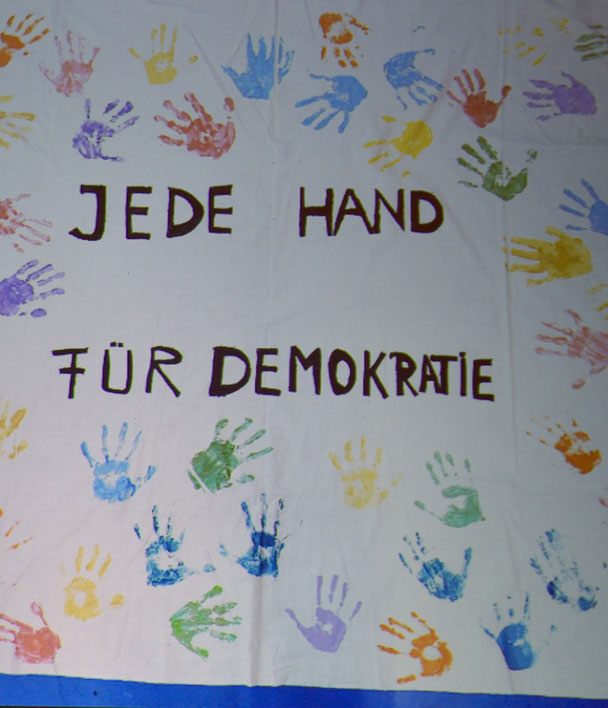 JEDE HAND
FÜR DEMOKRATIE